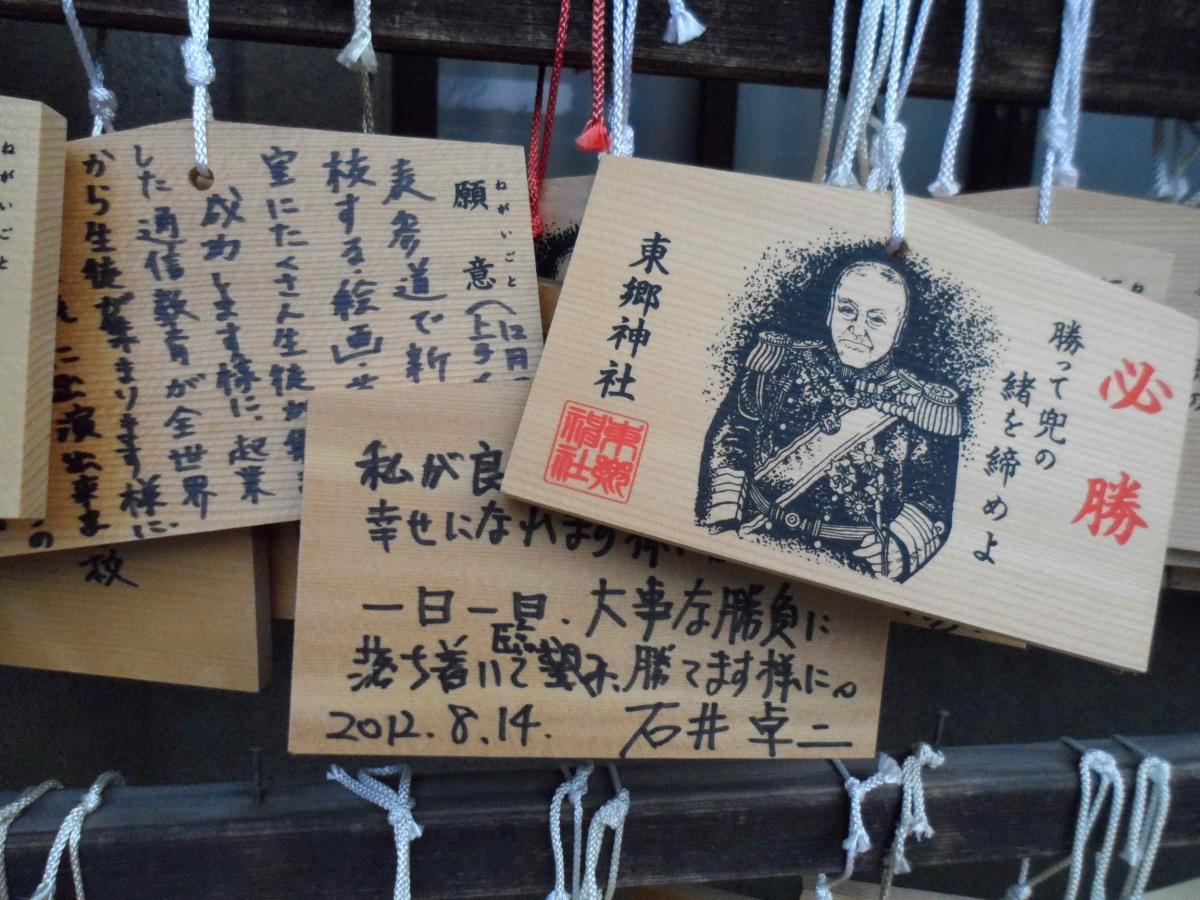 必勝
勝って兜の
緒を締めよ
東郷神社
東郷
神社
ねがいごと
願意
(12月
表参道で新
校する絵画・
室にたくさん生徒が
成功します様に、起業
した通信教育が全世界
から生徒が集まります様に
に出演出来ま
枚
ねがいごと
私が良
幸せになれます様に
一日一旦、大事な勝負に
落ち着いて臨み、勝てます様に。
2012.8.14. 石井卓二